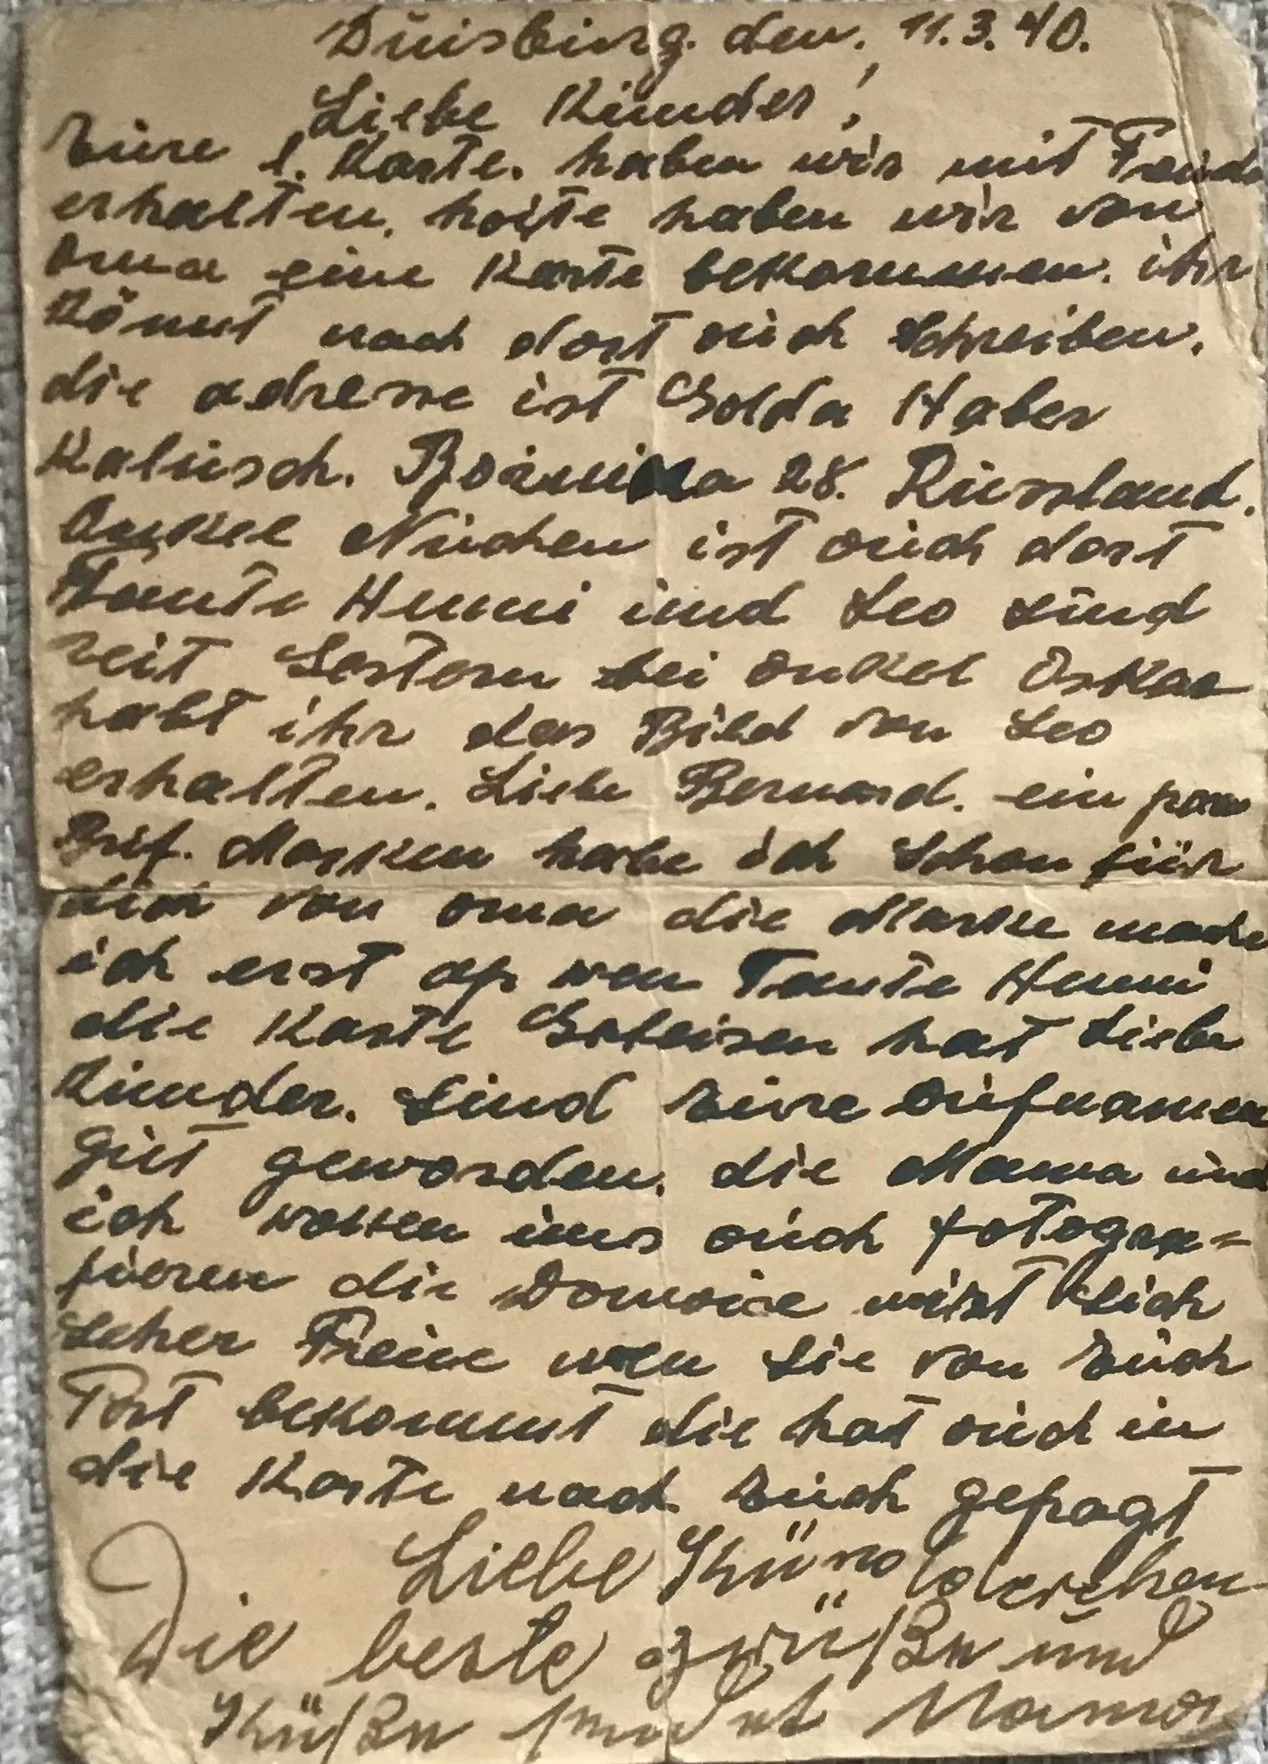 Duisburg. den. 11.3.40.
Liebe Kinder!
Eure l. Karte. haben wir mit Freude
erhalten. hoite haben wir von
oma eine Karte bekommen. ihr
Könnt nach dort auch schreiben.
die adresse ist Golda Haber
Kalusch. 28. Russland.
Onkel Nuchen ist auch dort
Tante Henni und Leo sind
seit Gestern bei onkel Oskar
habt ihr das Bild von Leo
erhalten. Liebe Bernard. ein paar
Brif. Marken habe ich schon für
dich von oma die Marke mache
ich erst ap wen Tante Henni
die Karte Geleisen hat Liebe
Kinder. sind Eure aufnamen
gut geworden. die Mama und
ich wollen uns auch fotogra-
fieren die wirt sich
seher Freue wen sie von Euch
Post bekommt die hat auch in
die Karte nach Euch gefragt
Liebe
Die beste grüßn und
Küßn Mama